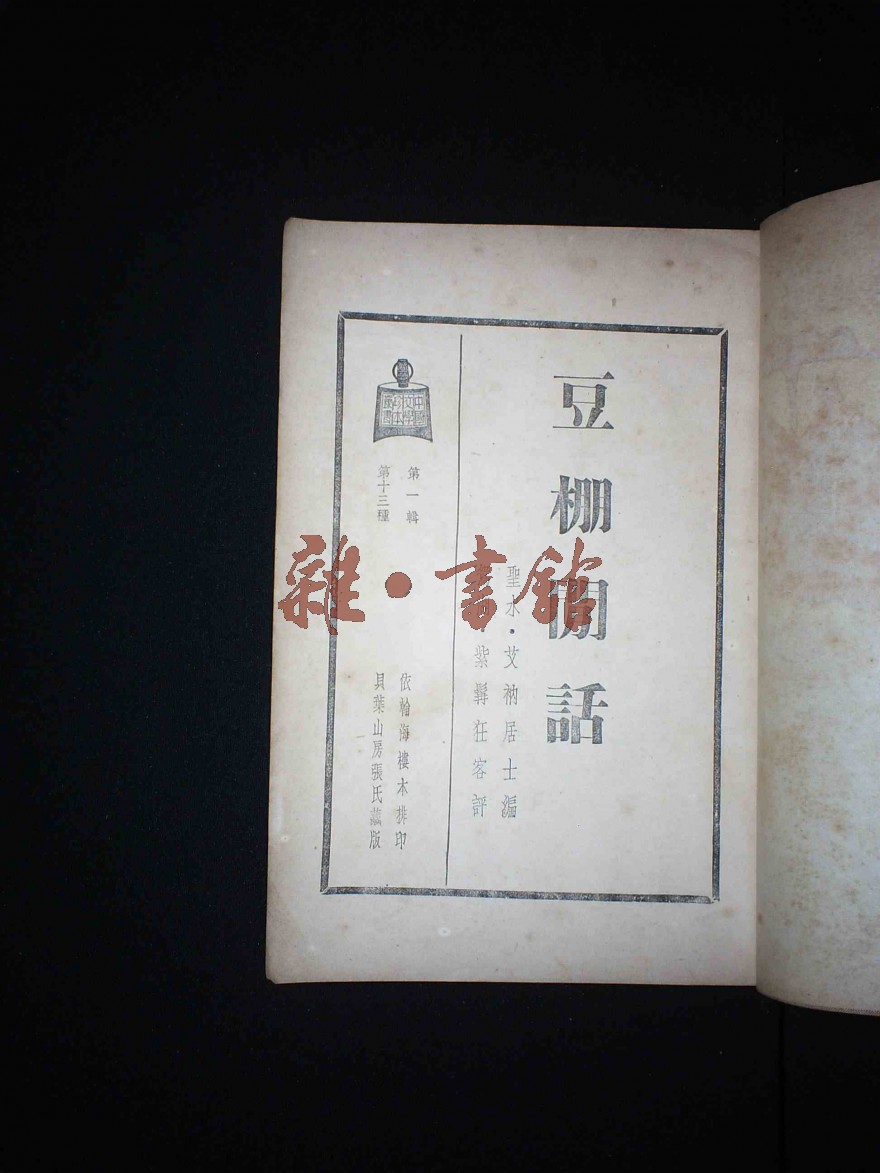 豆棚閒話
聖水·艾衲居士編
紫髯狂客評
中國文學珍本叢書
第一輯
第十三種
依翰海樓本排印
貝葉山房張氏藏版
雜·書館